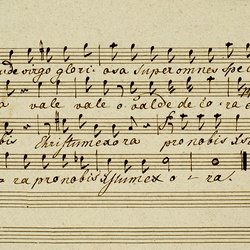 ude virgo glori. osa Super omnes spe
a vale vale o valde de co. ra e
bis Christum exora pro nobis xst
ra pro nobis xstum ex o - ra.